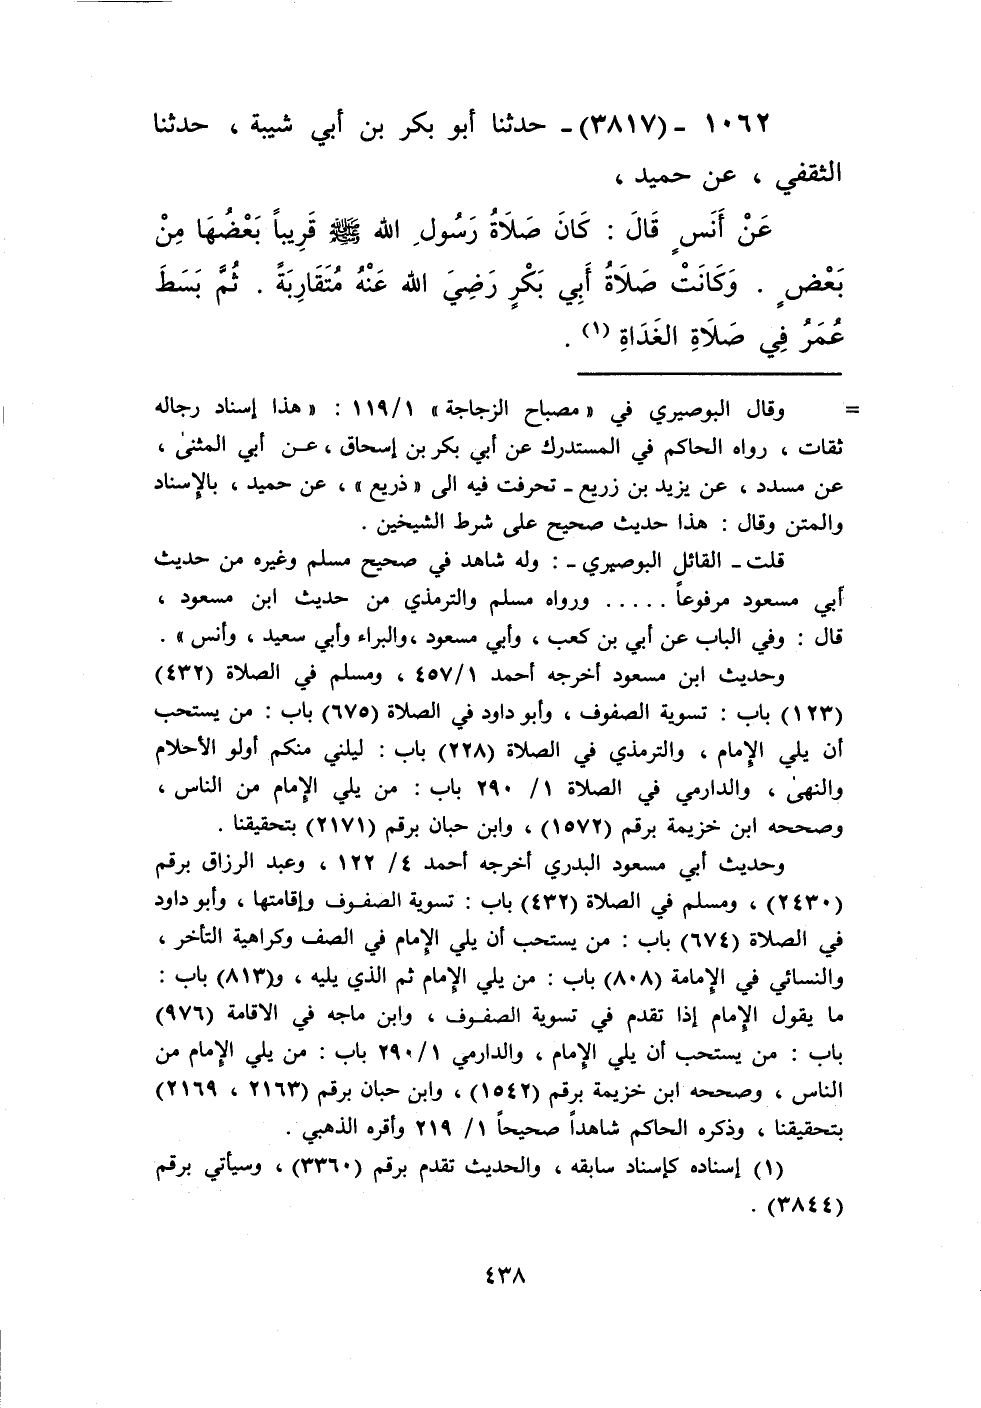 ١٠٦٢ - (٣٨١٧) - حدثنا أبو بكر بن أبي شيبة ، حدثنا
الثقفي ، عن حميد ،
عَنْ أَنَسٍ قَالَ : كَانَ صَلَاةُ رَسُولِ الله ﷺ قَرِيباً بَعْضُهَا مِنْ
بَعْضٍ . وَكَانَتْ صَلَاةُ أَبِي بَكْرٍ رَضِيَ الله عَنْهُ مُتَقَارِبَةً . ثُمَّ بَسَطَ
عُمَرُ فِي صَلَاةِ الغَدَاةِ (١) .
= وقال البوصيري في «مصباح الزجاجة» ١١٩/١ : «هذا إسناد رجاله
ثقات ، رواه الحاكم في المستدرك عن أبي بكر بن إسحاق ، عن أبي المثنىٰ ،
عن مسدد ، عن يزيد بن زريع - تحرفت فيه الى «ذريع» ، عن حميد ، بالإسناد
والمتن وقال : هذا حديث صحيح على شرط الشيخين .
قلت - القائل البوصيري - : وله شاهد في صحيح مسلم وغيره من حديث
أبي مسعود مرفوعاً ..... ورواه مسلم والترمذي من حديث ابن مسعود ،
قال : وفي الباب عن أبي بن كعب ، وأبي مسعود ،والبراء وأبي سعيد ، وأنس» .
وحديث ابن مسعود أخرجه أحمد ٤٥٧/١ ، ومسلم في الصلاة (٤٣٢)
(١٢٣) باب : تسوية الصفوف ، وأبو داود في الصلاة (٦٧٥) باب : من يستحب
أن يلي الإمام ، والترمذي في الصلاة (٢٢٨) باب : ليلني منكم أولو الأحلام
والنهىٰ ، والدارمي في الصلاة ١/ ٢٩٠ باب : من يلي الإمام من الناس ،
وصححه ابن خزيمة برقم (١٥٧٢) ، وابن حبان برقم (٢١٧١) بتحقيقنا .
وحديث أبي مسعود البدري أخرجه أحمد ٤/ ١٢٢ ، وعبد الرزاق برقم
(٢٤٣٠) ، ومسلم في الصلاة (٤٣٢) باب : تسوية الصفوف وإقامتها ، وأبو داود
في الصلاة (٦٧٤) باب : من يستحب أن يلي الإمام في الصف وكراهية التأخر ،
والنسائي في الإمامة (٨٠٨) باب : من يلي الإمام ثم الذي يليه ، و(٨١٣) باب :
ما يقول الإمام إذا تقدم في تسوية الصفوف ، وابن ماجه في الاقامة (٩٧٦)
باب : من يستحب أن يلي الإمام ، والدارمي ٢٩٠/١ باب : من يلي الإمام من
الناس ، وصححه ابن خزيمة برقم (١٥٤٢) ، وابن حبان برقم (٢١٦٣ ، ٢١٦٩)
بتحقيقنا ، وذكره الحاكم شاهداً صحيحاً ١/ ٢١٩ وأقره الذهبي .
(١) إسناده كإسناد سابقه ، والحديث تقدم برقم (٣٣٦٠) ، وسيأتي برقم
(٣٨٤٤) .
٤٣٨